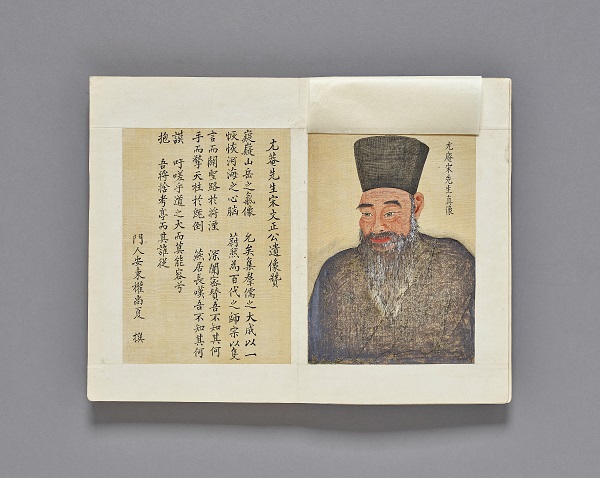 尤庵宋先生真像
尤菴先生宋文正公遺像贊
嶷嶷山岳之氣像 允矣集羣儒之大成以一
恢恢河海之心胸 蔚然為百代之師宗以隻
言而闢聖路於將湮 深闈密贊吾不知其何
手而擎天柱於旣倒 燕居長嘆吾不知其何
謨 吁嗟乎道之大而莫能容兮
抱 吾將捨考亭而其誰從
門人安東權尚夏 撰